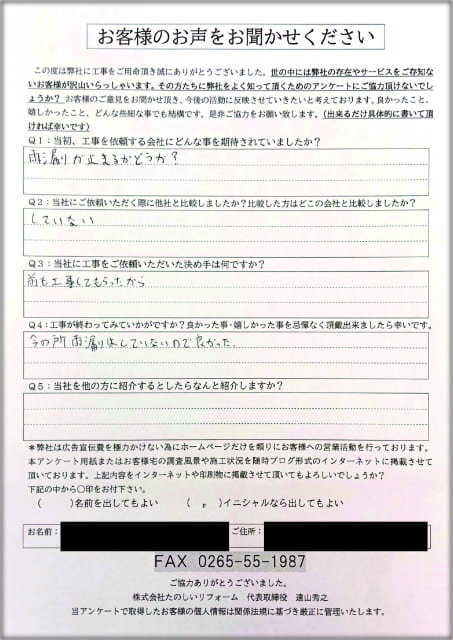 お客様のお声をお聞かせください
この度は弊社に工事をご用命頂き誠にありがとうございました。世の中には弊社の存在やサービスをご存知な
いお客様が沢山いらっしゃいます。その方たちに弊社をよく知って頂くためのアンケートにご協力頂けないでし
ょうか？ お客様のご意見をお聞かせ頂き、今後の活動に反映させていきたいと考えております。良かったこと、
嬉しかったこと、どんな些細な事でも結構です。是非ご協力をお願い致します。（出来るだけ具体的に書いて頂
ければ幸いです）
Q1：当初、工事を依頼する会社にどんな事を期待されていましたか？
雨漏りが止まるかどうか？
Q2：当社にご依頼いただく際に他社と比較しましたか？比較した方はどこの会社と比較しましたか？
していない
Q3：当社に工事をご依頼いただいた決め手は何ですか？
前も工事してもらったから
Q4：工事が終わってみていかがですか？良かった事・嬉しかった事を忌憚なく頂戴出来ましたら幸いです。
今の所雨漏りはしていないので良かった.
Q5：当社を他の方に紹介するとしたらなんと紹介しますか？
＊弊社は広告宣伝費を極力かけない為にホームページだけを頼りにお客様への営業活動を行っております。
本アンケート用紙またはお客様宅の調査風景や施工状況を随時ブログ形式のインターネットに掲載させて
頂いております。上記内容をインターネットや印刷物に掲載させて頂いてもよろしいでしょうか？
下記の中から〇印をお付下さい。
（　　）名前を出してもよい　　（　　）イニシャルなら出してもよい
お名前：　　ご住所：
FAX 0265-55-1987
ご協力ありがとうございました。
株式会社たのしいリフォーム　代表取締役　遠山秀之
当アンケートで取得したお客様の個人情報は関係法規に基づき厳正に管理いたします。